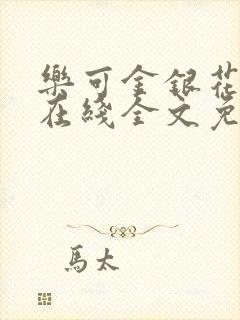 樂可金銀花
在綫全文免
馬太